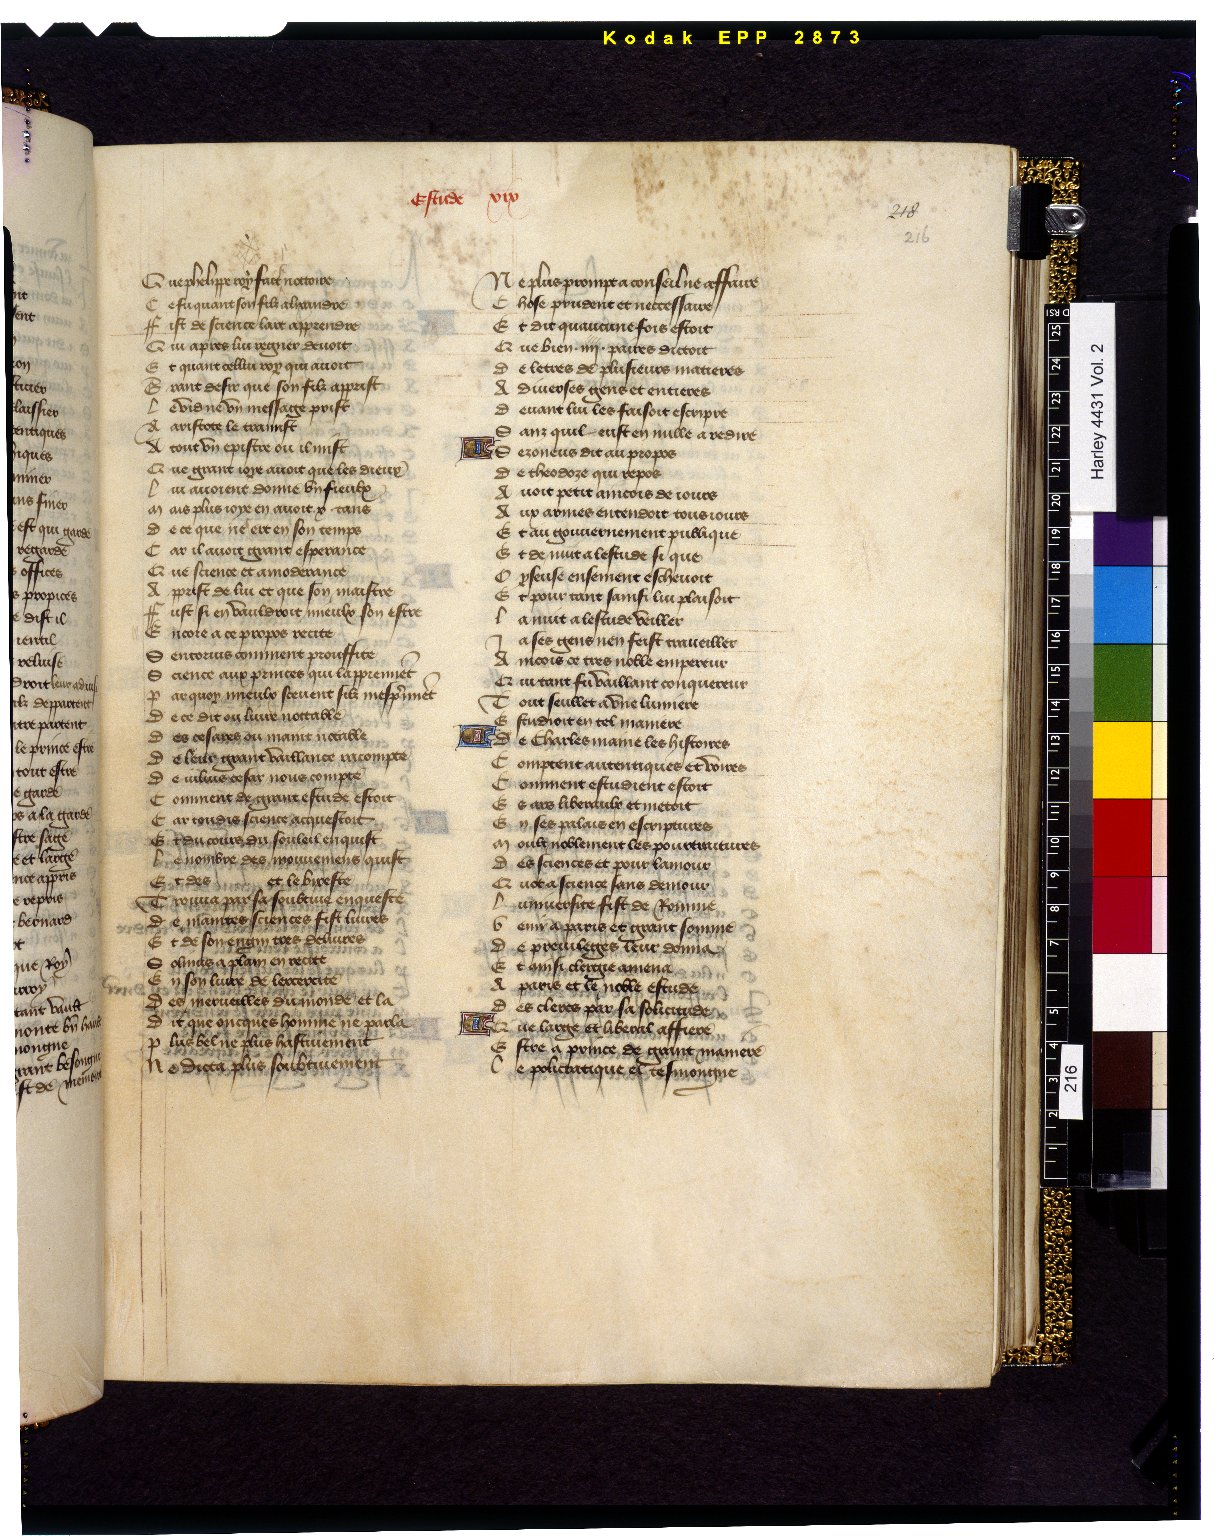 Kodak EPP 2873
Estude xix
218
216
Que phelippe roy fait nottoire
Ce fu quant son filz alixandre
Fist de science lart apprendre
Qui apres lui regner devoit
Et quant cellui roy qui avoit
Grant desir que son filz apprist
Le vid ne un message prist
A aristote le tramist
A tout un epistre ou il mist
Que grant ioye avoit que les dieux
Lui avoient donne un fieulx
Mais plus ioye en avoit x tans
De ce que ne ert en son temps
Car il avoit grant esperance
Que science et amoderance
Apprist de lui et que son maistre
Fust si en vauldroit mieulx son estre
Encore a ce propos recite
Sentorius comment prouffite
Science aux princes qui lapprennent
Par quoy mieulx scevent silz mesprennent
De ce dit ou livre nottable
Des cesares ou maint notable
De leur grant vaillance racompte
De iulius cesar nous compte
Comment de grant estude estoit
Car toudis science acquestoit
Et du cours du souleil enquist
Le nombre des mouvemens quist
Et des et le bixeste
Trouva par sa soubtive enqueste
De maintes sciences fist livres
Et de son engin tres delivres
Solinus a plain en recite
En son livre de lexercite
Des merveilles du monde et la
Dit que oncques homme ne parla
Plus bel ne plus hastivement
Ne dicta plus soubtivement
Ne plus prompt a conseil ne affaire
Chose prudent et neccessaire
Et dit quaucune fois estoit
Que bien .iiii. paires dictoit
De letres de plusieurs matieres
A diverses gens et entieres
Devant lui les faisoit escripre
Sanz quil eust en nulle a redire
Sezoneus dit au propos
De theodoze qui repos
Avoit petit aincois de iours
Aux armes entendoit tous iours
Et au gouvernement publique
Et de nuit a lestude si que
Oyseuse ensement eschevoit
Et pour tant sainsi lui plaisoit
La nuit a lestude veiller
Ja ses gens nen feist traveiller
Aincois ce tres noble empereur
Qui tant fu vaillant conquereur
Tout seullet a une lumiere
Estudioit en tel maniere
De Charlesmaine les histoires
Comptent autentiques et voires
Comment estudient estoit
Es ars liberaulx et metoit
En ses palais en escriptures
Moult noblement les pourtraitures
Des sciences et pour lamour
Quot a science sans demour
Luniversite fist de Romme
Venir a paris et grant somme
De previleges leur donna
Et ainsi clergie amena
A paris et le noble estude
Des clercs par sa solicitude
Que large et liberal affiere
Estre a prince de grant maniere
Le policratique el tesmoingne
Harley 4431 Vol. 2
216